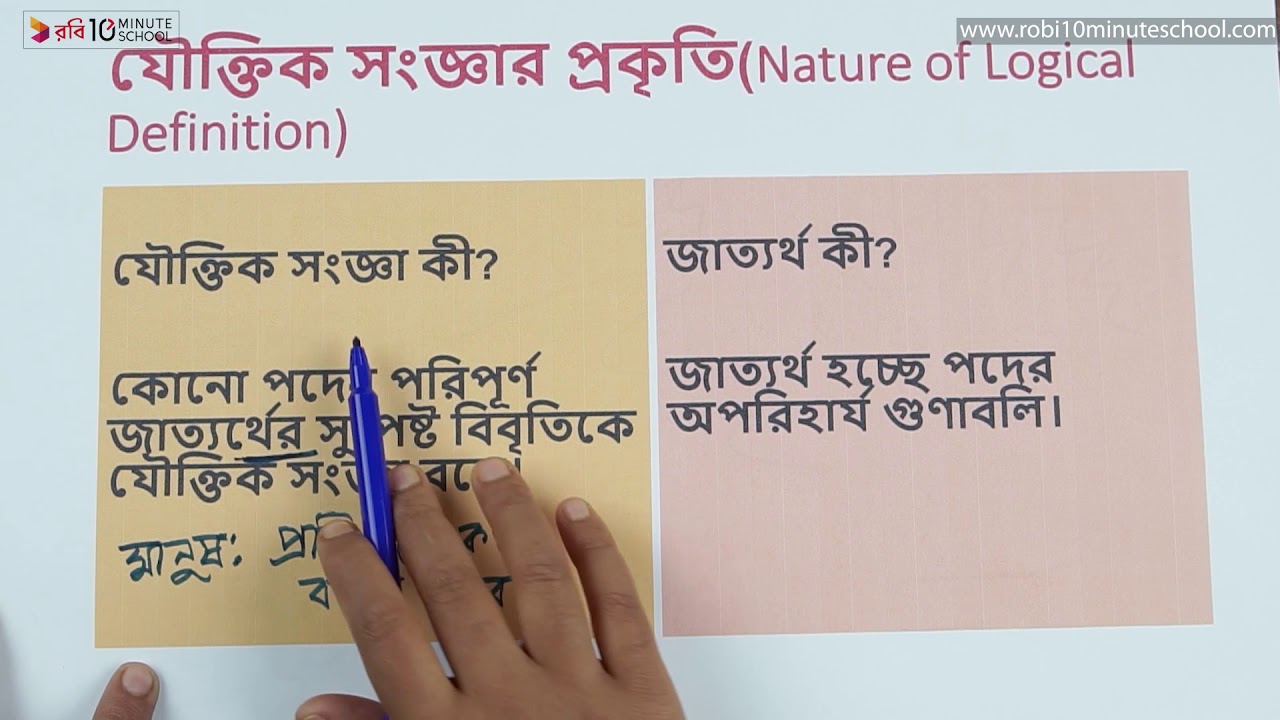 রবি 10 MINUTE SCHOOL
www.robi10minuteschool.com
যৌক্তিক সংজ্ঞার প্রকৃতি(Nature of Logical
Definition)
যৌক্তিক সংজ্ঞা কী?
কোনো পদের পরিপূর্ণ
জাত্যর্থের সুস্পষ্ট বিবৃতিকে
যৌক্তিক সংজ্ঞা বলে।
মানুষ:
জাত্যর্থ কী?
জাত্যর্থ হচ্ছে পদের
অপরিহার্য গুণাবলি।